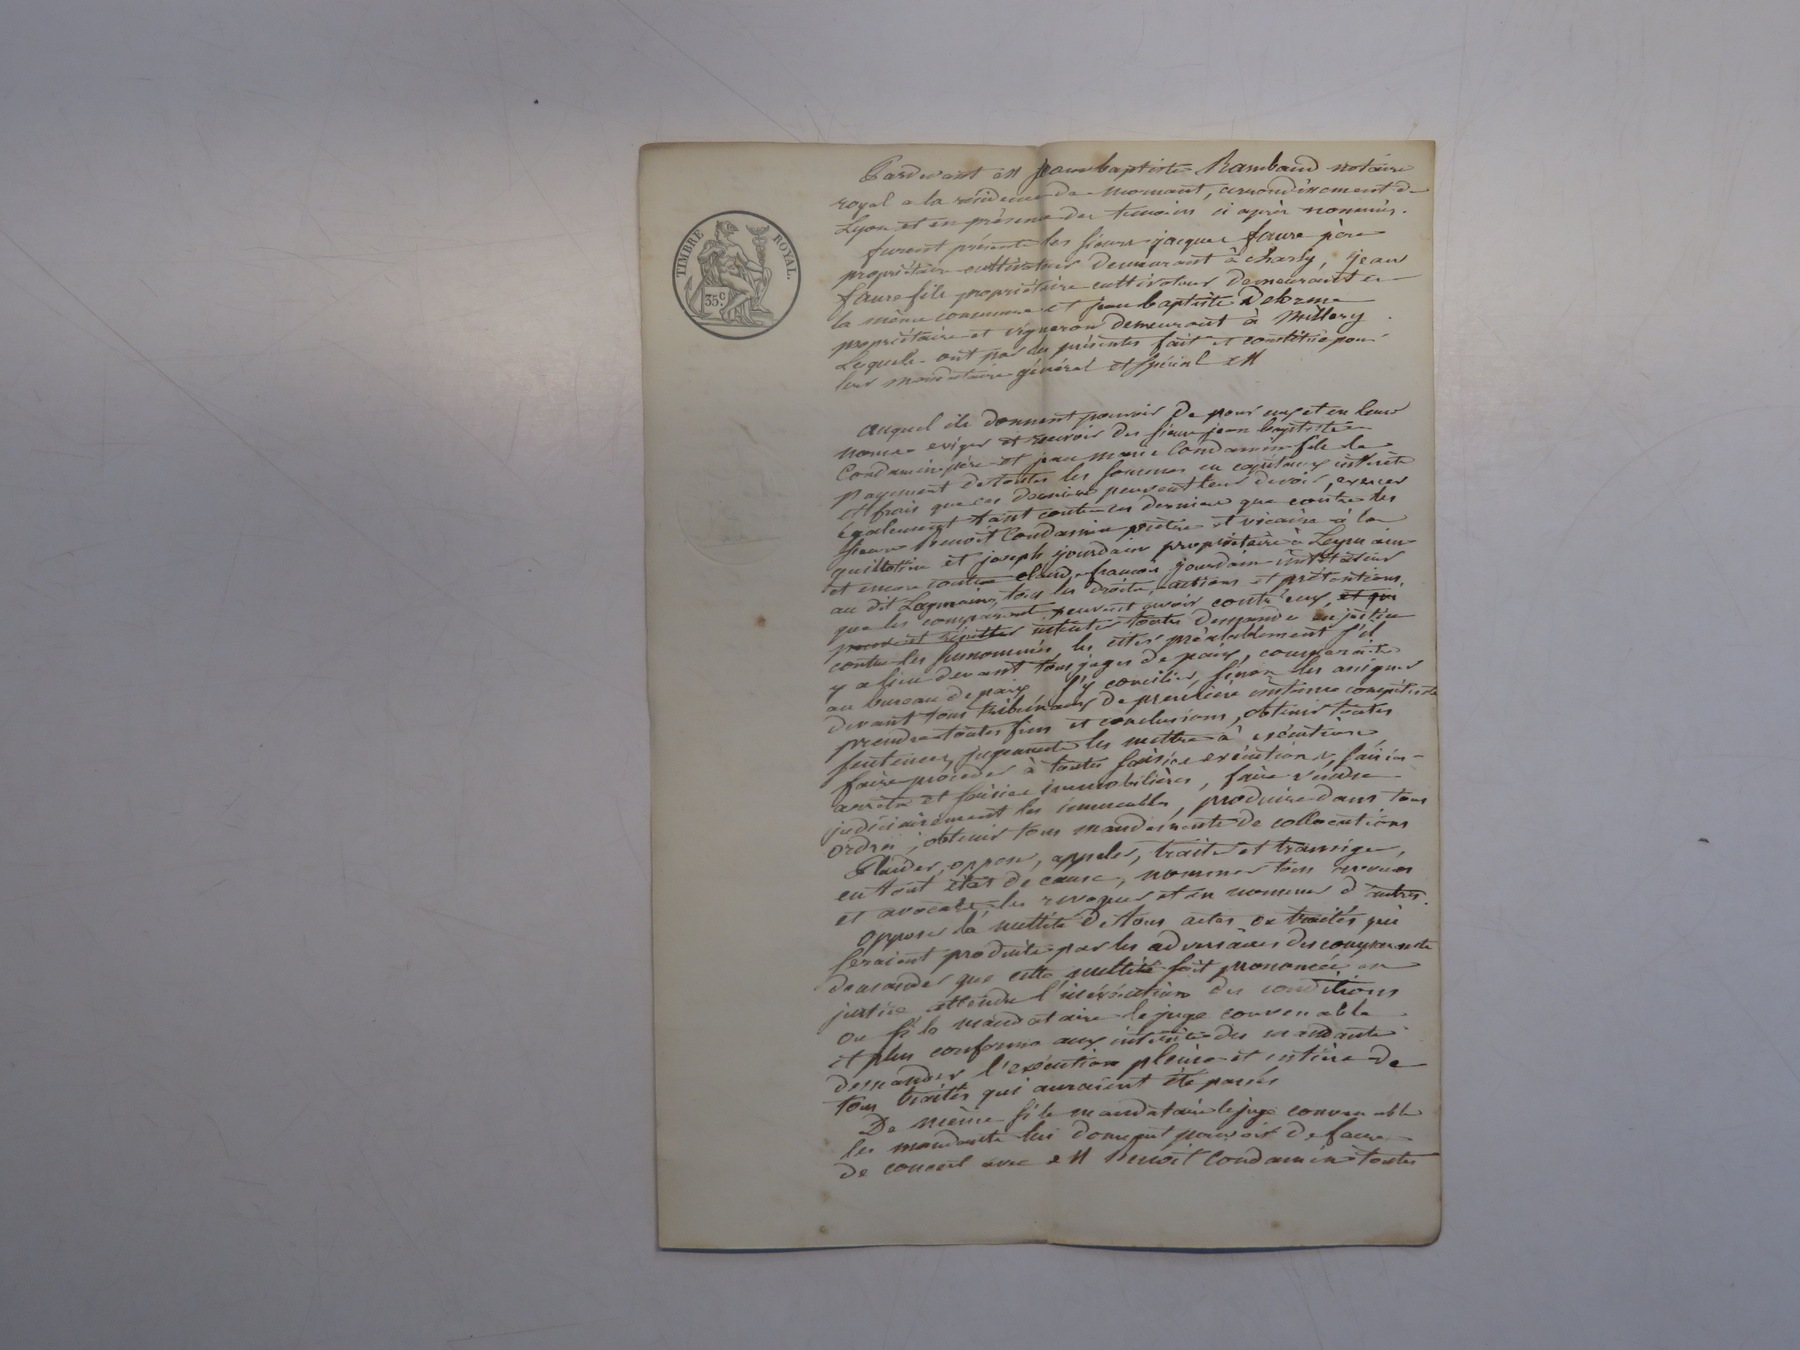 TIMBRE ROYAL.
35 c.
Pardevant Me Jean baptiste Rambaud notaire
royal a la résidence de Mornant, arrondissement de
Lyon et en présence des témoins ci après nommés.
furent présents les sieurs jacques faure père
propriétaire cultivateur demeurant à Charly, jean
faure fils propriétaire cultivateur demeurant en
la même commune et jean baptiste Delorme
propriétaire et vigneron demeurant à Millery
Lesquels ont par les présentes fait et constitué pour
leur mandataire général et spécial Me
auquel ils donnent pouvoir de pour eux et en leurs
noms exiger et recevoir des sieurs jean baptiste
Condamin père et jean marie Condamin fils le
payement de toutes les sommes en capitaux intérêts
et frais que ces derniers peuvent leur devoir, exercer
également tant contre ces derniers que contre les
sieurs Benoît Condamin prêtre et vicaire à la
guillotière et joseph jourdain propriétaire à
et encore contre claude françois jourdain
au dit tous les droits, actions et prétentions
que les comparants peuvent avoir contr'eux, et
pour intenter toutes demandes en justice
contre les susnommés, les citer préalablement s'il
y a lieu devant tous juges de paix, comparaître
au bureau de paix s'y concilier, sinon les assigner
devant tous tribunaux de première instance compétents
prendre toutes fins et conclusions, obtenir toutes
sentences, jugements les mettre à exécution
faire procéder à toutes saisies exécutions, saisies-
arrêts et saisies immobilières, faire vendre
judiciairement les immeubles, produire dans tous
ordres, obtenir tous mandements de collocations
Plaider, opposer, appeler, traiter et transiger,
en tout état de cause, nommer tous avoués
et avocats, les revoquer et en nommer d'autres.
opposer la nullité de tous actes ou traités qui
seraient produits par les adversaires des comparants
demander que cette nullité soit prononcée en
justice attendu l'inéxécution des conditions
ou si le mandataire le juge convenable
et plus conforme aux intérêts des mandants
demander l'exécution pleine et entière de
tous traités qui auraient été passés
De même si le mandataire le juge convenable
les mandants lui donnent pouvoir de faire
de concert avec Me Benoît Condamin toutes